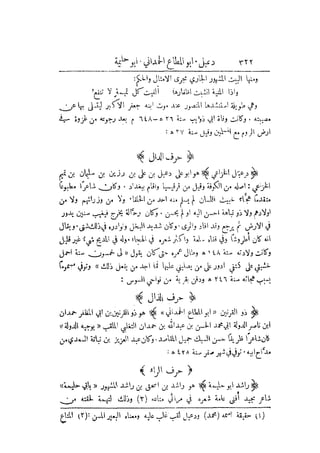 ٣٢٢ دعبل - ابو المطاع الحمداني - ابو حلية
ومنها البيت المشهور الجاري مجرى الامثال والحكم:
واذا المنية انشبت اظفارها الفيت كل تميمة لا تنفع
وهي طويلة استنشدها المنصور عند موت ابنه جعفر الاكبر ليتسلى بها عن
مصيبته، وكانت وفاة ابي ذؤيب سنة ٢٦ هـ - ٦٤٨ م بعد رجوعه من غزوة
ارض الروم مع وقيل سنة ٢٧ هـ:
حرف الدال
دعبل الخزاعي هو ابو علي دعبل بن علي بن رزين بن سليمان بن تميم
الخزاعي: اصله من الكوفة وقيل من قرقيسيا واقام ببغداد، وكان شاعرا مطبوعا
هجاء خبيث اللسان لم يسلم منه احد من الخلفاء ولا من وزرائهم ولا من
اولادهم ولا ذو نباهة احسن اليه او لم يحسن، وكان يخرج فيغيب سنين يدور
في الارض ثم يرجع وقد افاد واثرى، وكان شديد البخل ونوادره في ذلك شتى، ويقال
انه كان اطروشا وفي قفاه سلعة واكثر شعره في الهجاء، وله في المديح شيء غير قليل
وكانت ولادته سنة ١٤٨ هـ وطال عمره حتى كان يقول « لي خمسون سنة احمل
خشبتي على كتفي ادور على من يصلبني عليها فما اجد من يفعل ذلك » وتوفي
بسبب هجائه سنة ٢٤٦ هـ ودفن بقرية من نواحي السوس:
حرف الذال
ذو القرنين « ابو المطاع الحمداني » هو ذو القرنين بن ابي المظفر حمدان
ابن ناصر الدولة ابي محمد الحسن بن عبد الله بن حمدان التغلبي الملقب « بوجيه الدولة »
كان شاعرا ظريفا حسن السبك جميل المقاصد، وكان عبد العزيز بن نباتة السعدي من
مداح ابيه، توفي في شهر صفر سنة ٤٢٨ هـ:
حرف الراء
راشد ابو حليمة هو راشد بن اسحق بن راشد المشهور « بابي حليمة »
شاعر مجيد افنى عامة شعره في مراثي متاعه (٢) وذلك لتهمة لحقته من
(١) حقيقة اسمه (محمد) ودعبل لقب غلب عليه ومعناه البعير المسن (٢) المتاع